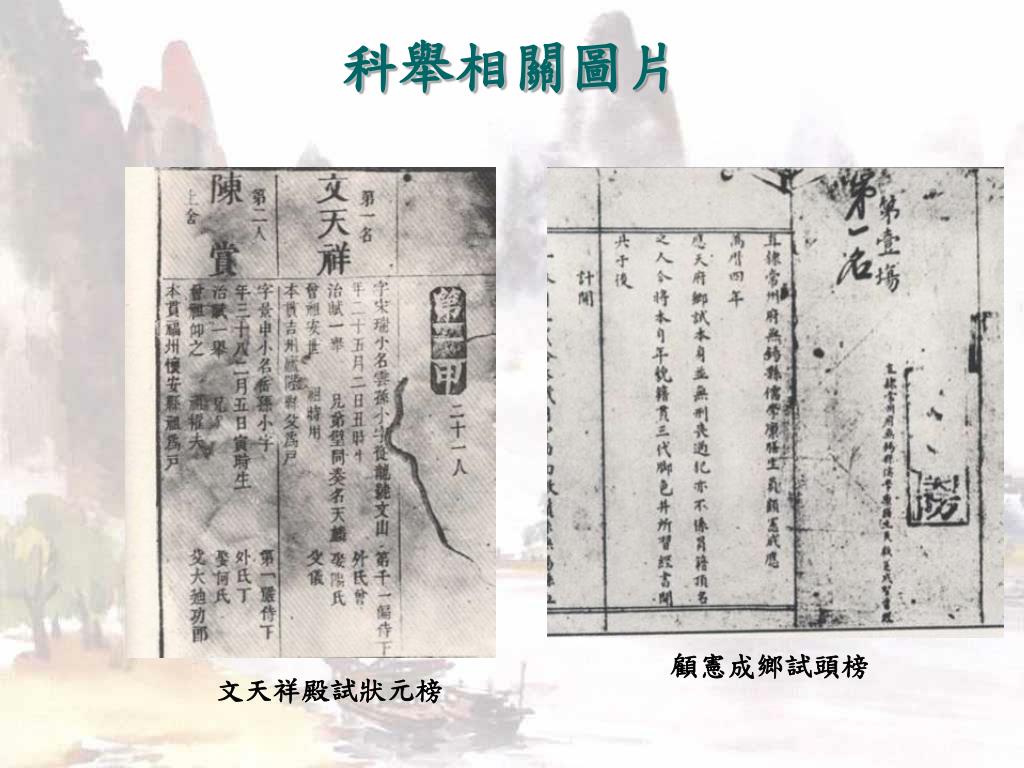 科舉相關圖片
第一甲
二十一人
第一名
文天祥
字宋瑞小名雲孫小字從龍號文山
第千一偏侍下
年二十五月二日丑時生
外氏曾
治賦一舉
兄弟璧同奏名天麟
娶陽氏
曾祖安世
祖時用
父儀
本貫吉州廬陵縣父為戶
第二人
陳賞
上舍
字景申小名岳孫小字
第一嚴侍下
年三十八二月五日寅時生
外氏丁
治賦一舉
兄弟
娶何氏
曾祖仰之
祖權大
父大
功郎
本貫福州懷安縣祖為戶
文天祥殿試狀元榜
第壹場
第一名
直隸常州府無錫縣儒學
直隸常州府無錫縣儒學廩膳生員顧憲成應
萬曆四年
應天府鄉試本身並無刑喪過犯亦不係冒籍頂名
之人今將本身年貌籍貫三代腳色并所習經書開
具于後
計開
顧憲成鄉試頭榜